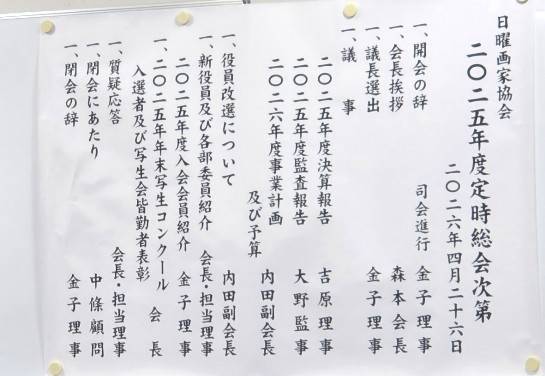 日曜画家協会
二〇二五年度定時総会次第
二〇二六年四月二十六日
司会進行 金子理事
一、開会の辞 金子理事
一、会長挨拶 森本会長
一、議長選出 金子理事
一、議 事
二〇二五年度決算報告 吉原理事
二〇二五年度監査報告 大野監事
二〇二六年度事業計画
及び予算 内田副会長
一、役員改選について 内田副会長
一、新役員及び各部委員紹介 会長・担当理事
二〇二五年度入会会員紹介 金子理事
一、二〇二五年年末写生コンクール
入選者及び写生会皆勤者表彰 会 長
一、質疑応答 会長・担当理事
一、閉会にあたり 中條顧問
一、閉会の辞 金子理事